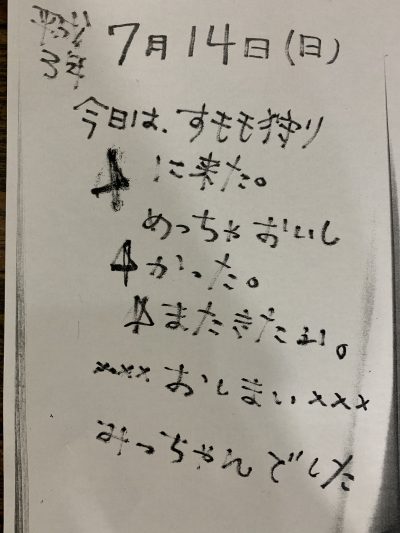 平成
3年
7月14日(日)
今日は、すもも狩り
に来た。
めっちゃおいし
かった。
またきたい。
xxxおしまいxxx
みっちゃんでした